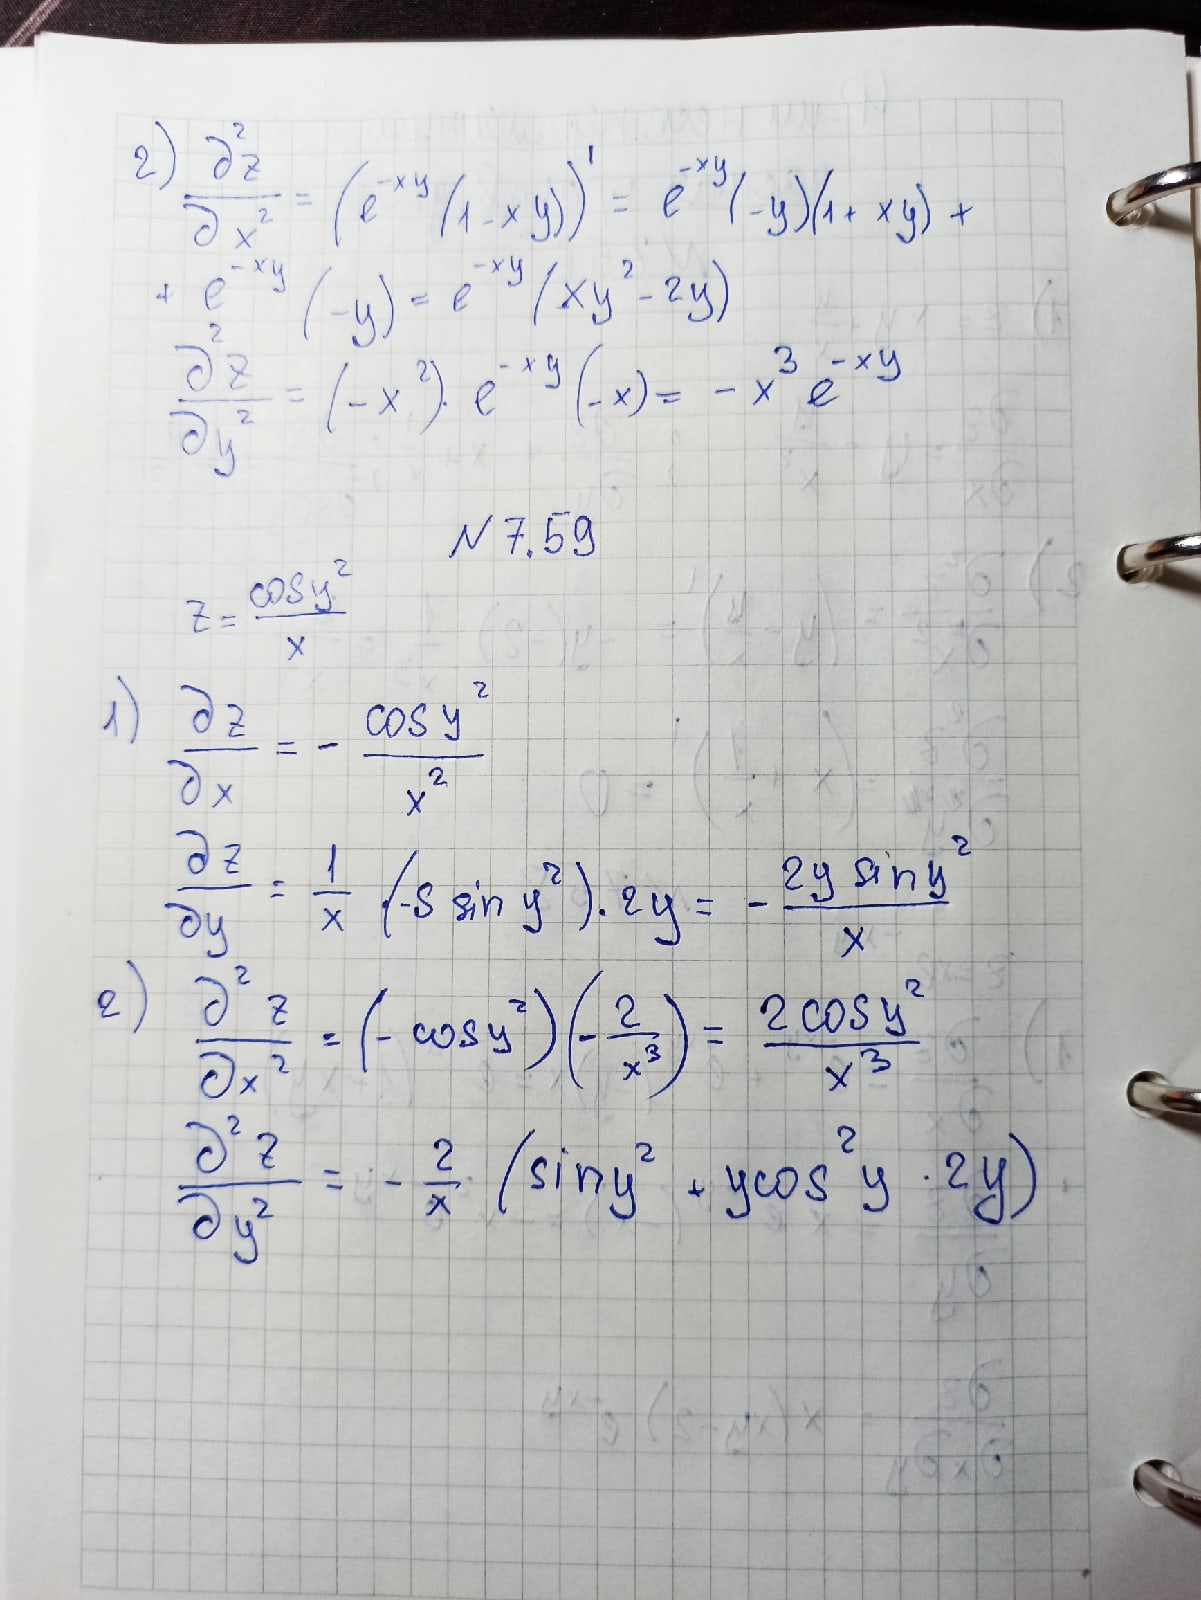 2) ∂²z/∂x² = (e^(-xy)(1-xy))' = e^(-xy)(-y)(1+xy) +
+ e^(-xy)(-y) = e^(-xy)(xy²-2y)
∂²z/∂y² = (-x²)·e^(-xy)(-x) = -x³e^(-xy)
N 7.59
z = cosy²/x
1) ∂z/∂x = - cosy²/x²
∂z/∂y = 1/x ·(-s siny²)·2y = - 2y siny²/x
2) ∂²z/∂x² = (-cosy²)(-2/x³) = 2cosy²/x³
∂²z/∂y² = - 2/x (siny² + ycos²y · 2y)